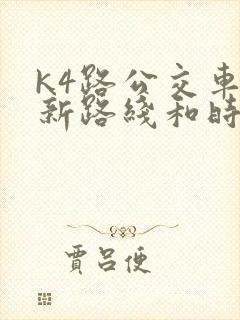 K4路公交車
新路綫和時
賈呂便